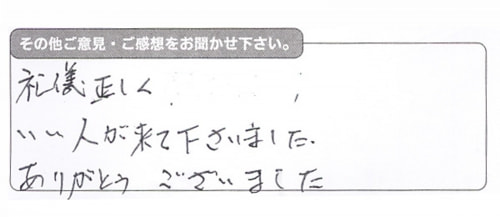 その他ご意見・ご感想をお聞かせ下さい。
礼儀正しく
いい人が来て下さいました.
ありがとう ございました